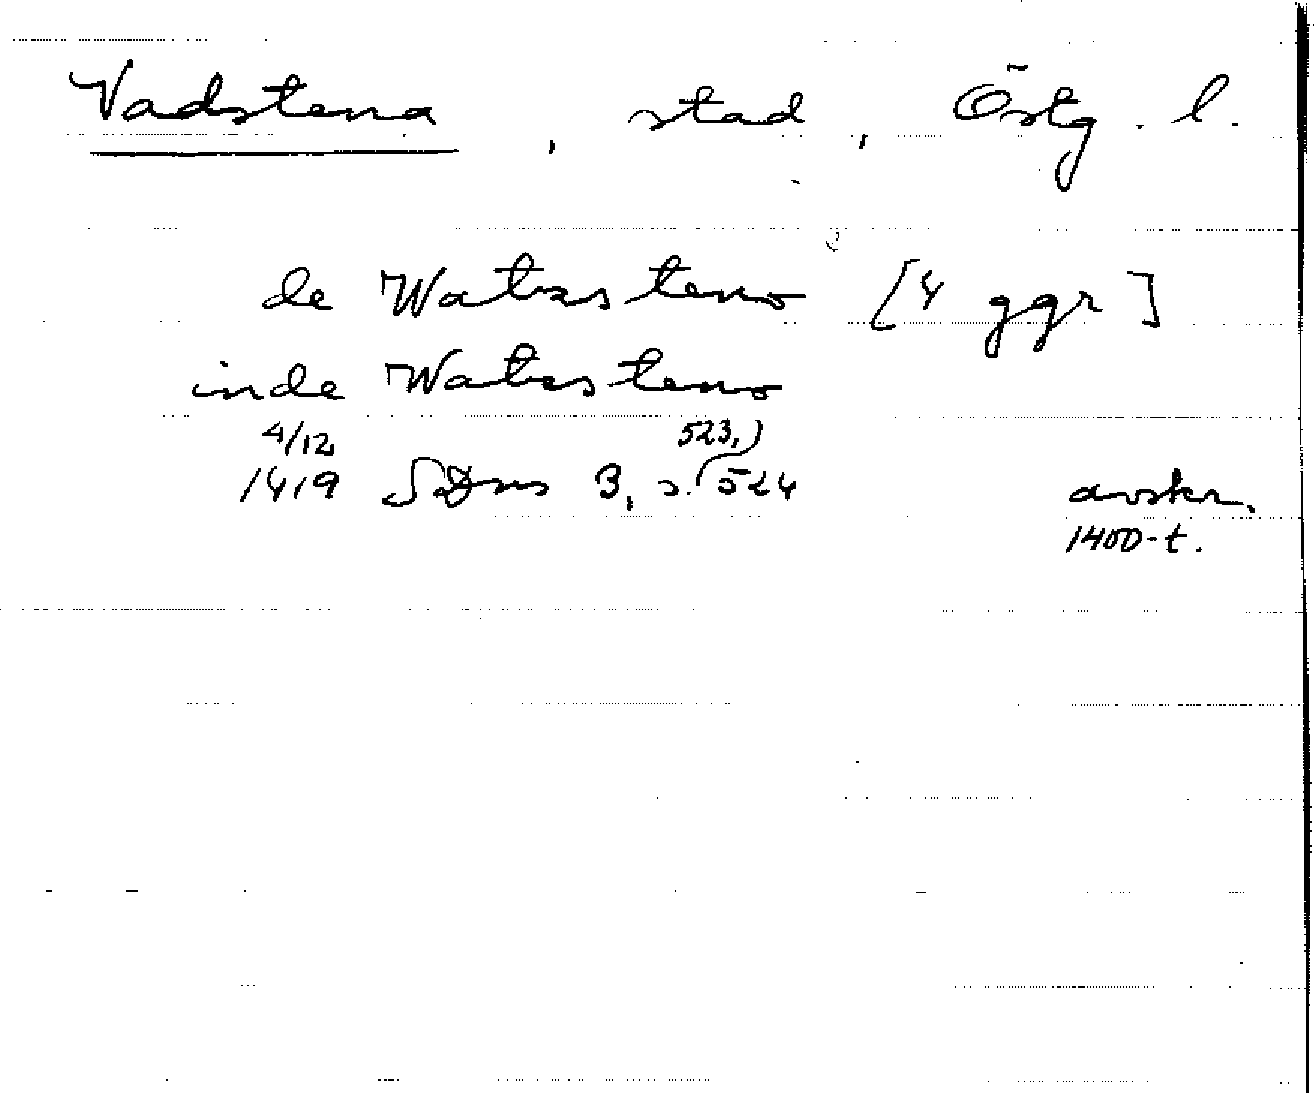 Vadstena, stad, Östg. l.
de Watzsteno [4 ggr]
inde Watzsteno
4/12 523,)
1419 SDns 3, s. 524 avskr.
1400-t.